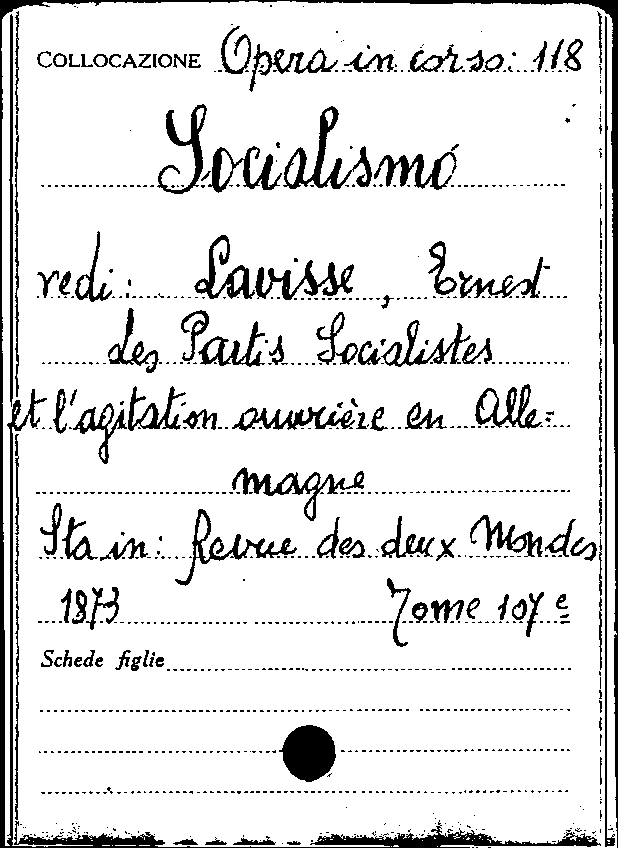 COLLOCAZIONE Opera in corso: 118
Socialismo
vedi: Lavisse, Ernest
des Partis Socialistes
et l'agitation ouvrière en Alle=
magne
Sta in: Revue des deux Mondes
1873 Tome 107e
Schede figlie